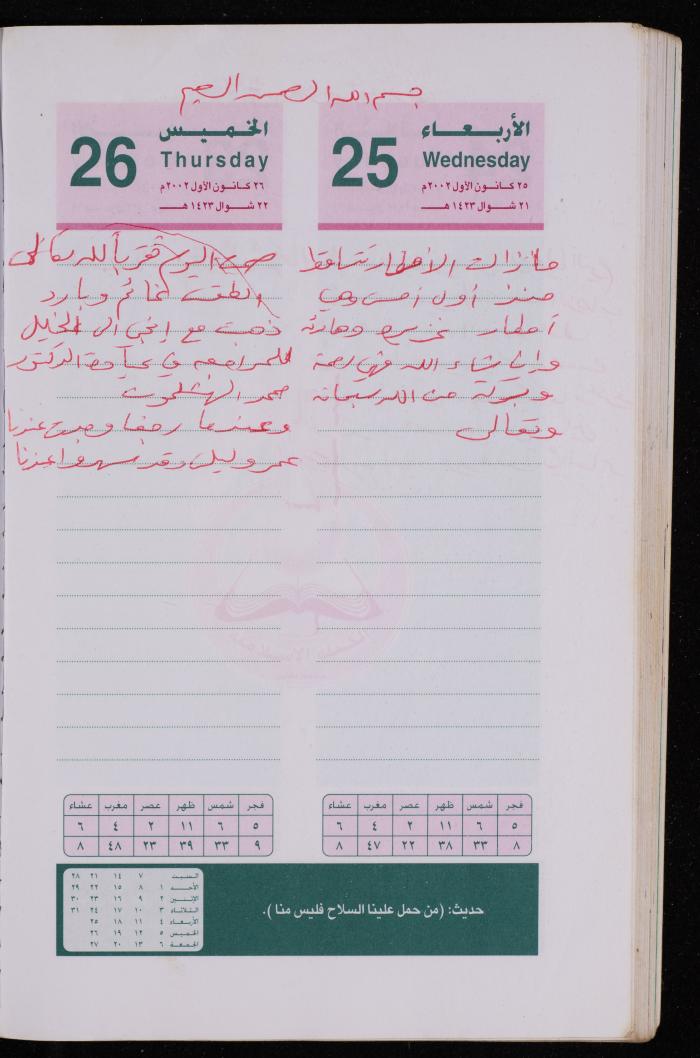 بسم الله الرحمن الرحيم
الأربعاء
25
Wednesday
٢٥ كانون الأول ٢٠٠٢م
٢١ شوال ١٤٢٣ هـ
ما زالت الأمطار تتساقط
منذ أول أمس وهي
أمطار غزيرة وهادئة
وان شاء الله فهي رحمة
وبركة من الله سبحانه
وتعالى
الخميس
26
Thursday
٢٦ كانون الأول ٢٠٠٢م
٢٢ شوال ١٤٢٣ هـ
صمت اليوم تقرباً لله تعالى
الطقس غائم وبارد
ذهبت مع ابني الى الخليل
للمراجعه في عيادة الدكتور
محمد
وعندما رجعنا وجدت عندنا
عمر وليلى وقد سهروا عندنا
فجر شمس ظهر عصر مغرب عشاء
٥ ٦ ١١ ٢ ٤ ٦
٨ ٣٣ ٣٨ ٢٢ ٤٧ ٨
فجر شمس ظهر عصر مغرب عشاء
٥ ٦ ١١ ٢ ٤ ٦
٩ ٣٣ ٣٩ ٢٣ ٤٨ ٨
حديث: (من حمل علينا السلاح فليس منا).
السبت ٧ ١٤ ٢١ ٢٨
الأحد ١ ٨ ١٥ ٢٢ ٢٩
الإثنين ٢ ٩ ١٦ ٢٣ ٣٠
الثلاثاء ٣ ١٠ ١٧ ٢٤ ٣١
الأربعاء ٤ ١١ ١٨ ٢٥
الخميس ٥ ١٢ ١٩ ٢٦
الجمعة ٦ ١٣ ٢٠ ٢٧